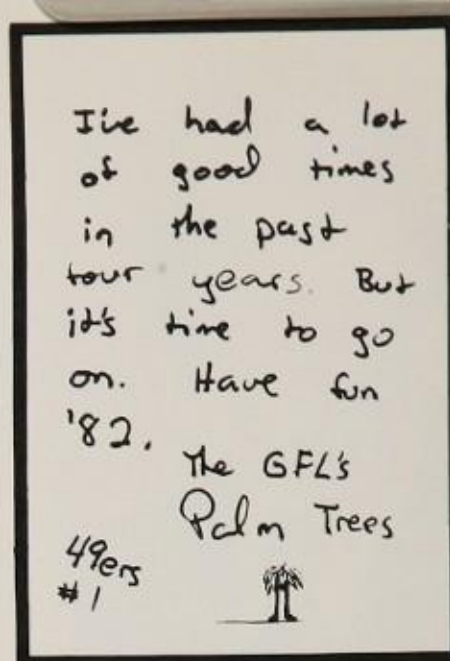 I've had a lot
of good times
in the past
four years. But
it's time to go
on. Have fun
'82.
The GFL's
Palm Trees
49ers
#1